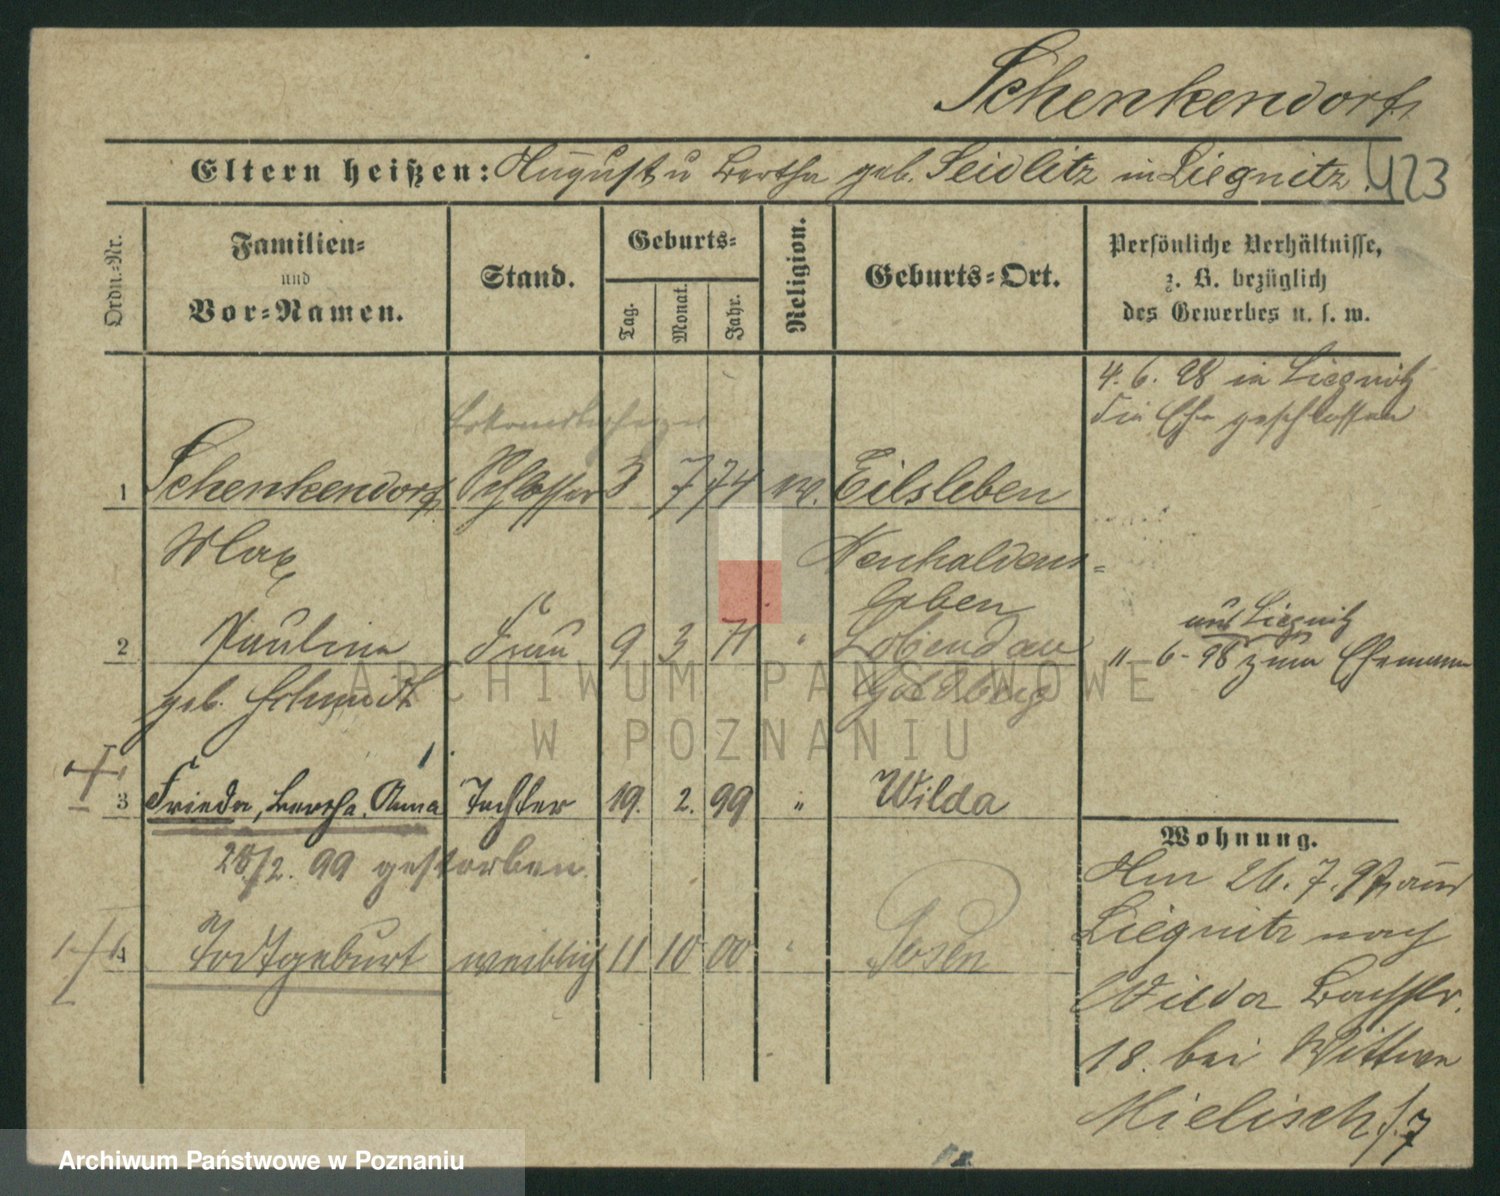 Schenkendorf,
Eltern heißen: August u Bertha geb. Seidlitz in Liegnitz.
423
Ordn.-Nr.
Familien-
und
Vor-Namen.
Stand.
Geburts-
Tag.
Monat.
Jahr.
Religion.
Geburts-Ort.
Persönliche Verhältnisse,
z. B. bezüglich
des Gewerbes u. s. w.
4. 6. 98 in Liegnitz
die Ehe geschlossen
1 Schenkendorf, Schlosser 3 7 74 Eilsleben
Max, Neuhaldens-
leben
2 Pauline Frau 9 3 71 " Lobendau
geb. Schmidt Goldberg
aus Liegnitz
" 6-98 zum Ehemann
3 Frieda, Bertha, Anna Tochter 19. 2. 99 " Wilda
28./2. 99 gestorben.
4 Todtgeburt weiblich 11 10 00 " Posen
Wohnung.
Am 26. 7. 97, aus
Liegnitz nach
Wilda Bachstr.
18. bei Wittwe
Mielisch. /7
ARCHIWUM PAŃSTWOWE
W POZNANIU
Archiwum Państwowe w Poznaniu